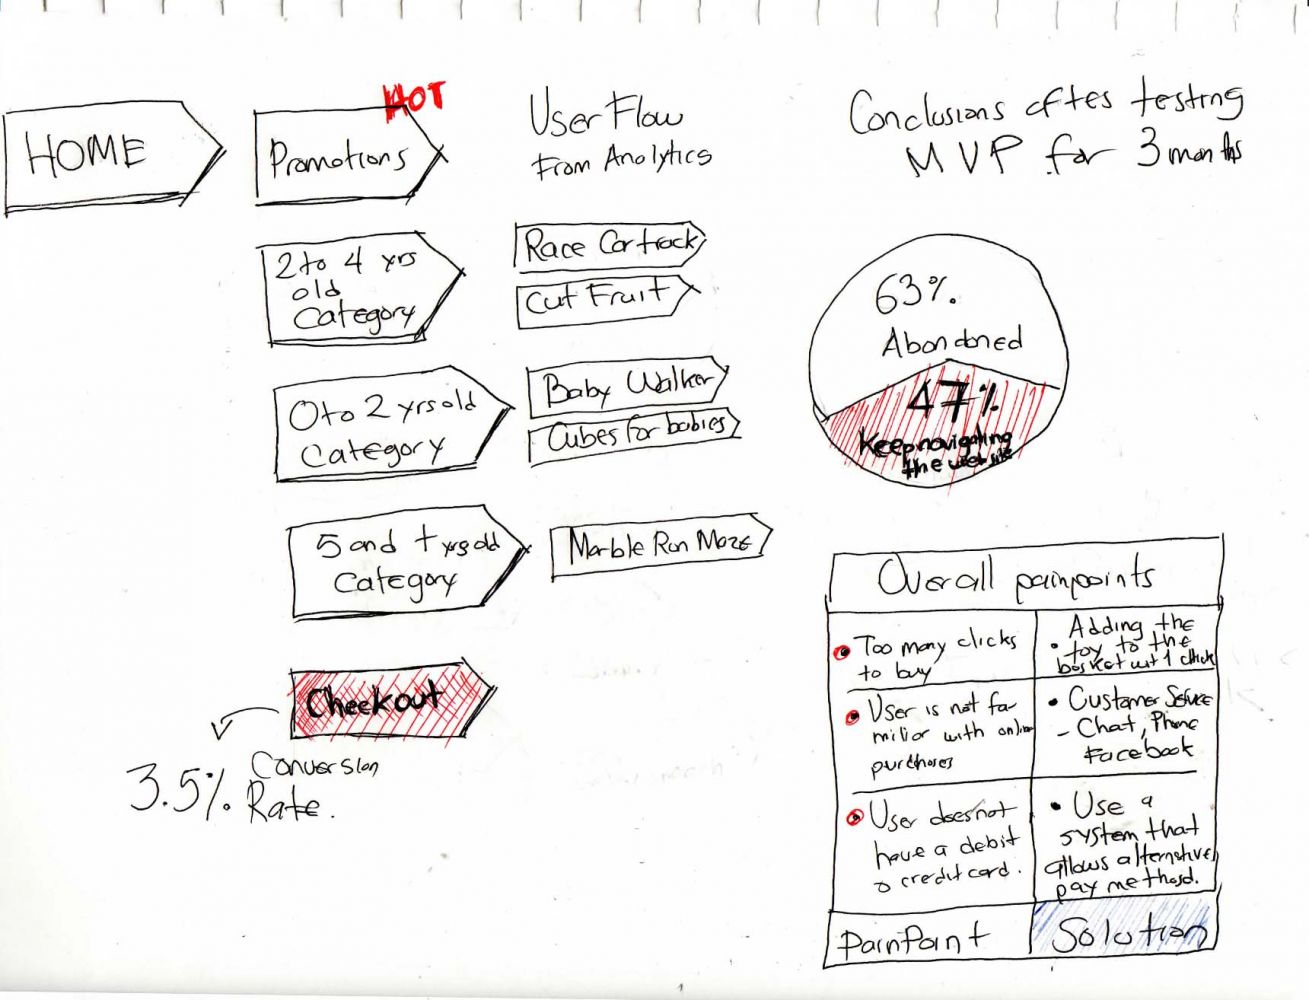 HOME
HOT
Promotions
User Flow
From Analytics
2 to 4 yrs
old
Category
Race Car track
Cut Fruit
0 to 2 yrs old
Category
Baby Walker
Cubes for babies
5 and + yrs old
Category
Marble Run Maze
Checkout
3.5% Conversion
Rate.
Conclusions after testing
MVP for 3 months
63%
Abandoned
47%
Keep navigating
the web site
Overall painpoints
• Too many clicks
to buy
• Adding the
toy to the
basket w/ 1 click
• User is not fa
miliar with online
purchases
• Customer Service
- Chat, Phone
Facebook
• User does not
have a debit
o credit card.
• Use a
system that
allows alternative
pay method.
PainPoint
Solution